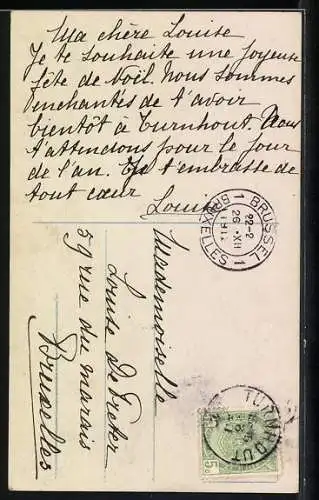 Ma chère Louise
Je te souhaite une joyeuse
fête de Noël. Nous sommes
enchantés de t'avoir
bientôt à Turnhout. Nous
t'attendons pour le jour
de l'an. Je t'embrasse de
tout cœur
Louise
Mademoiselle
Louise De Prter
59 rue du marais
Bruxelles
1 BRUSSEL 1
22-2
26 XII
BRUXELLES
TURNHOUT
5